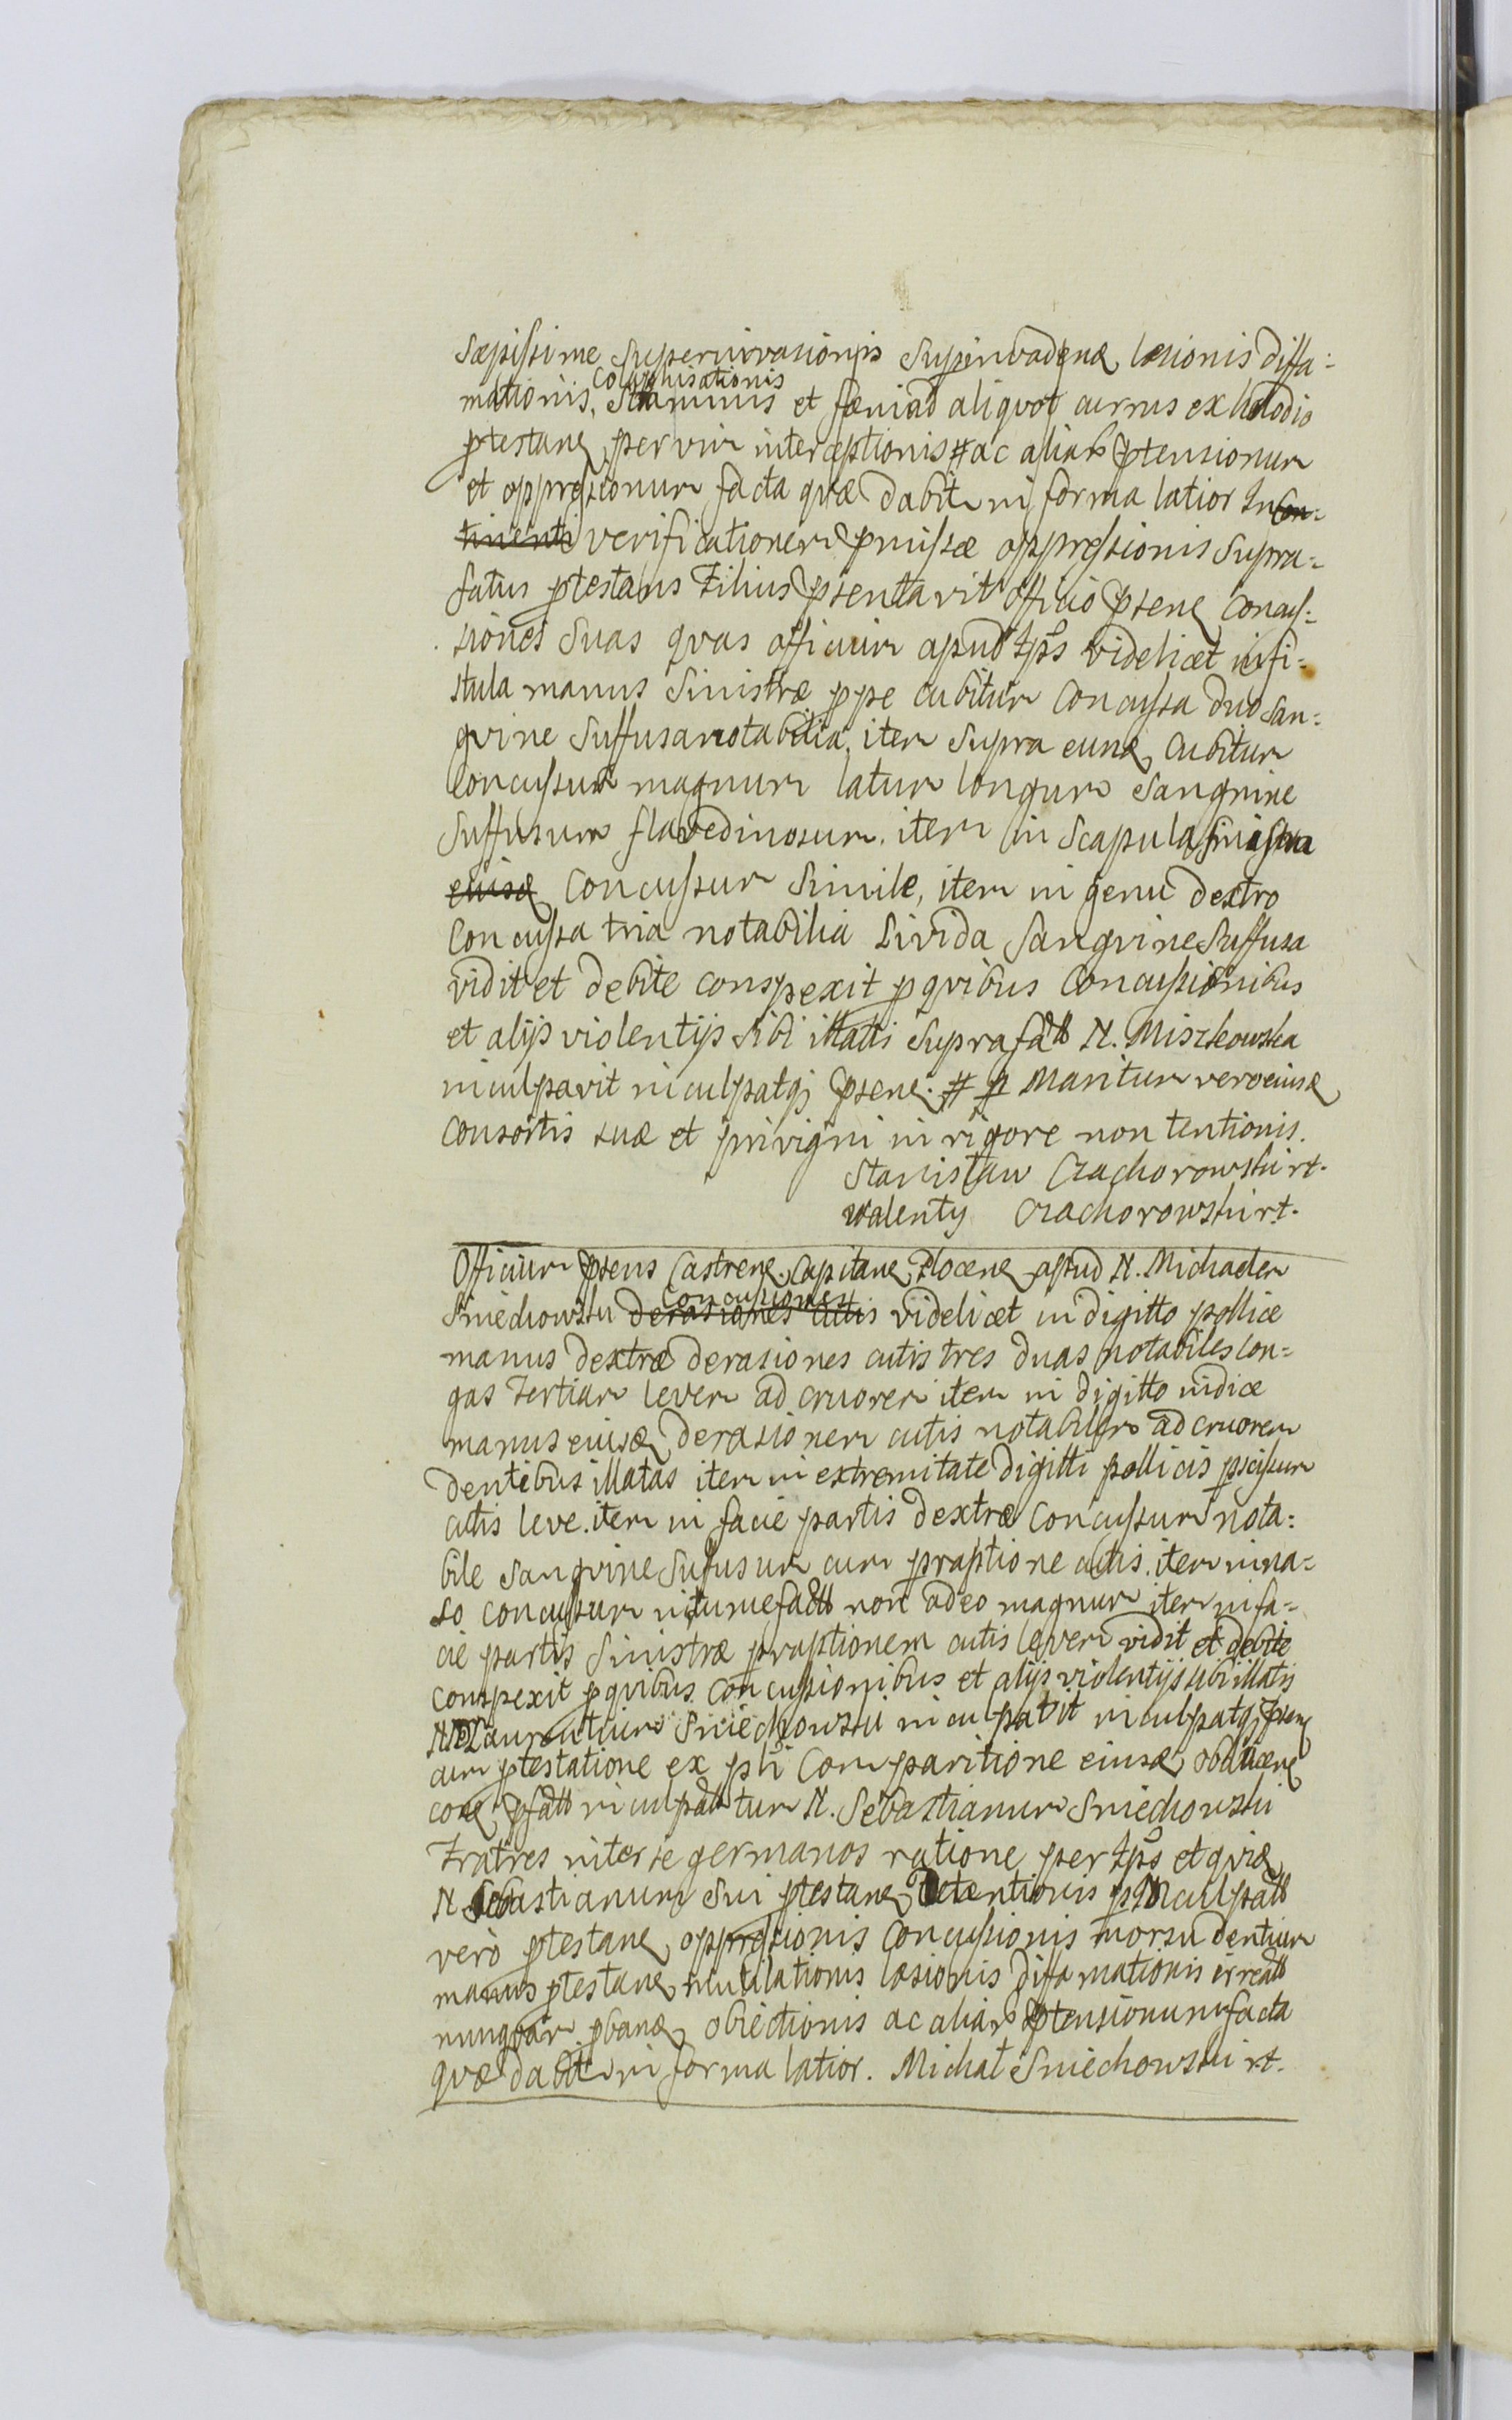 sæpissime superinvasionis superinvadenꝫ læsionis diffa=
colaphisationis
mationis, Staminis et fæni ad aliquot currus ex
ꝓtestanꝫ per vim interceptionis # ac aliarꝫ ꝓtensionum
et oppressionum facta quæ dabitur in forma latior In con=
tinenti verificationem pmissæ oppressionis supra=
fatus ꝓtestans Filius psentavit officio psenꝫ concus=
siones suas quas officium apud Ips̃ videlicet in fi=
stula manus sinistræ ꝓpe cubitum concussa duo san=
gvine suffusa notabilia, item supra eunꝫ cubitum
concussum magnum latum longum sangvine
suffusum flavedinosum. item in scapula sinistra
eiusꝫ concussum simile, item in genu dextro
concussa tria notabilia livida sangvine suffusa
vidit et debite conspexit ꝓ qvibus concussionibus
et alijs violentijs sibi illatis suprafatt N. Miszkowska
inculpavit inculpatqꝫ psenꝫ. # Maritum vero eiusꝫ
consortis suæ et privigni in rigore non tentionis.
Stanisław Czachorowski rt.
Walenty Czachorowski rt.
Officium psens Castrenꝫ Capitanꝫ Plocenꝫ apud N. Michaelem
concussiones
Sniechowski derasiones cutis videlicet in digitto pollice
manus dextræ derasiones cutis tres duas notabiles lon=
gas tertiam levem ad cruorem item in digitto indice
manus eiusꝫ derasionem cutis notabilem ad cruorem
dentibus illatas item in extremitate digitti pollicis pscissum
cutis leve. item in facie partis dextræ concussum nota=
bile sangvine sufusum cum pruptione cutis. item in na=
so concussum intumefactt non adeo magnum item in fa=
cie partis sinistræ pruptionem cutis levem vidit et debite
conspexit ꝓ qvibus concussionibus et alijs violentijs sibi illatis
N. Laurentium Sniechowski inculpavit inculpatqꝫ psenꝫ
cum ꝓtestatione ex pti comparitione eiusꝫ obducenꝫ
conꝫ pfatt inculpattum N. Sebastianum Sniechowski
Fratres inter se germanos ratione per Ips̃ et quiꝫ
N Sebastianum sui ꝓtestanꝫ Detentionis p inculpatt
verò ꝓtestanꝫ oppressionis concussionis morsu dentium
manus ꝓtestanꝫ mutilationis læsionis diffamationis irreatt
nunqvam ꝓbanꝫ obiectionis ac aliarꝫ ptensionum facta
quæ dabitur in forma latior. Michał Sniechowski rt.